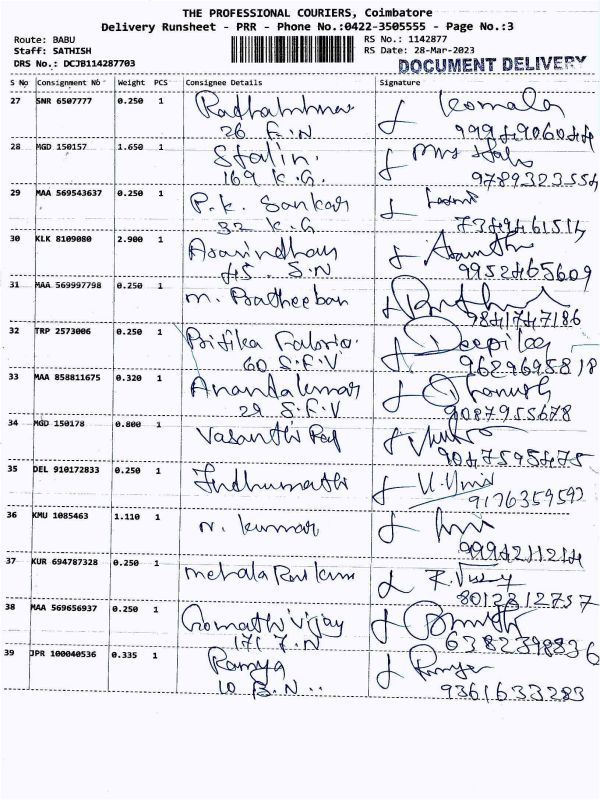 THE PROFESSIONAL COURIERS, Coimbatore
Delivery Runsheet - PRR - Phone No.:0422-3505555 - Page No.:3
Route: BABU RS No.: 1142877
Staff: SATHISH RS Date: 28-Mar-2023
DRS No.: DCJB114287703 DOCUMENT DELIVERY
S No Consignment Nb Weight PCS Consignee Details Signature
27 SNR 6507777 0.250 1 Komala
26 F.N 9994906044
28 MGD 150157 1.650 1 Stalin.
169 K.G. 9789323554
29 MAA 569543637 0.250 1 P.K. Sankar
32 K.G
30 KLK 8109080 2.900 1
45. S.N 9952465609
31 MAA 569997798 0.250 1 M. Pratheeban
9841747186
32 TRP 2573006 0.250 1 Deepika
60 S.F.V 9629695818
33 MAA 858811675 0.320 1 Anandakumar
29 S.F.V 9087955678
34 MGD 150178 0.800 1 Vasanthi
9047595475
35 DEL 910172833 0.250 1 Indhumathi
9176359597
36 KMU 1085463 1.110 1 N. Kumar
9994211214
37 KUR 694787328 0.250 1
8012812757
38 MAA 569656937 0.250 1 Gomathi Vijay
171 F.N 6382398836
39 JPR 100040536 0.335 1 Ramya
10 B.N .. 9361633283